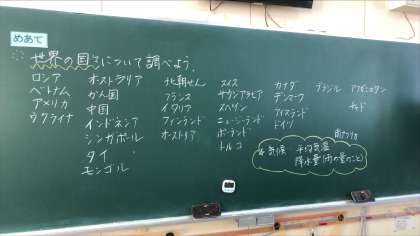 めあて
世界の国々について調べよう。
ロシア
ベトナム
アメリカ
ウクライナ
オーストラリア
かん国
中国
インドネシア
シンガポール
タイ
モンゴル
北朝せん
フランス
イタリア
フィンランド
オーストリア
スイス
サウジアラビア
スペイン
ニュージーランド
ポーランド
トルコ
カナダ
デンマーク
アイスランド
ドイツ
ブラジル
アフガニスタン
チャド
南アフリカ
気候 平均気温
降水量(雨の量のこと)